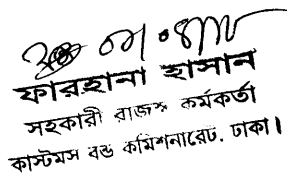 ফারহানা হাসান
সহকারী রাজস্ব কর্মকর্তা
কাস্টমস বন্ড কমিশনারেট, ঢাকা।